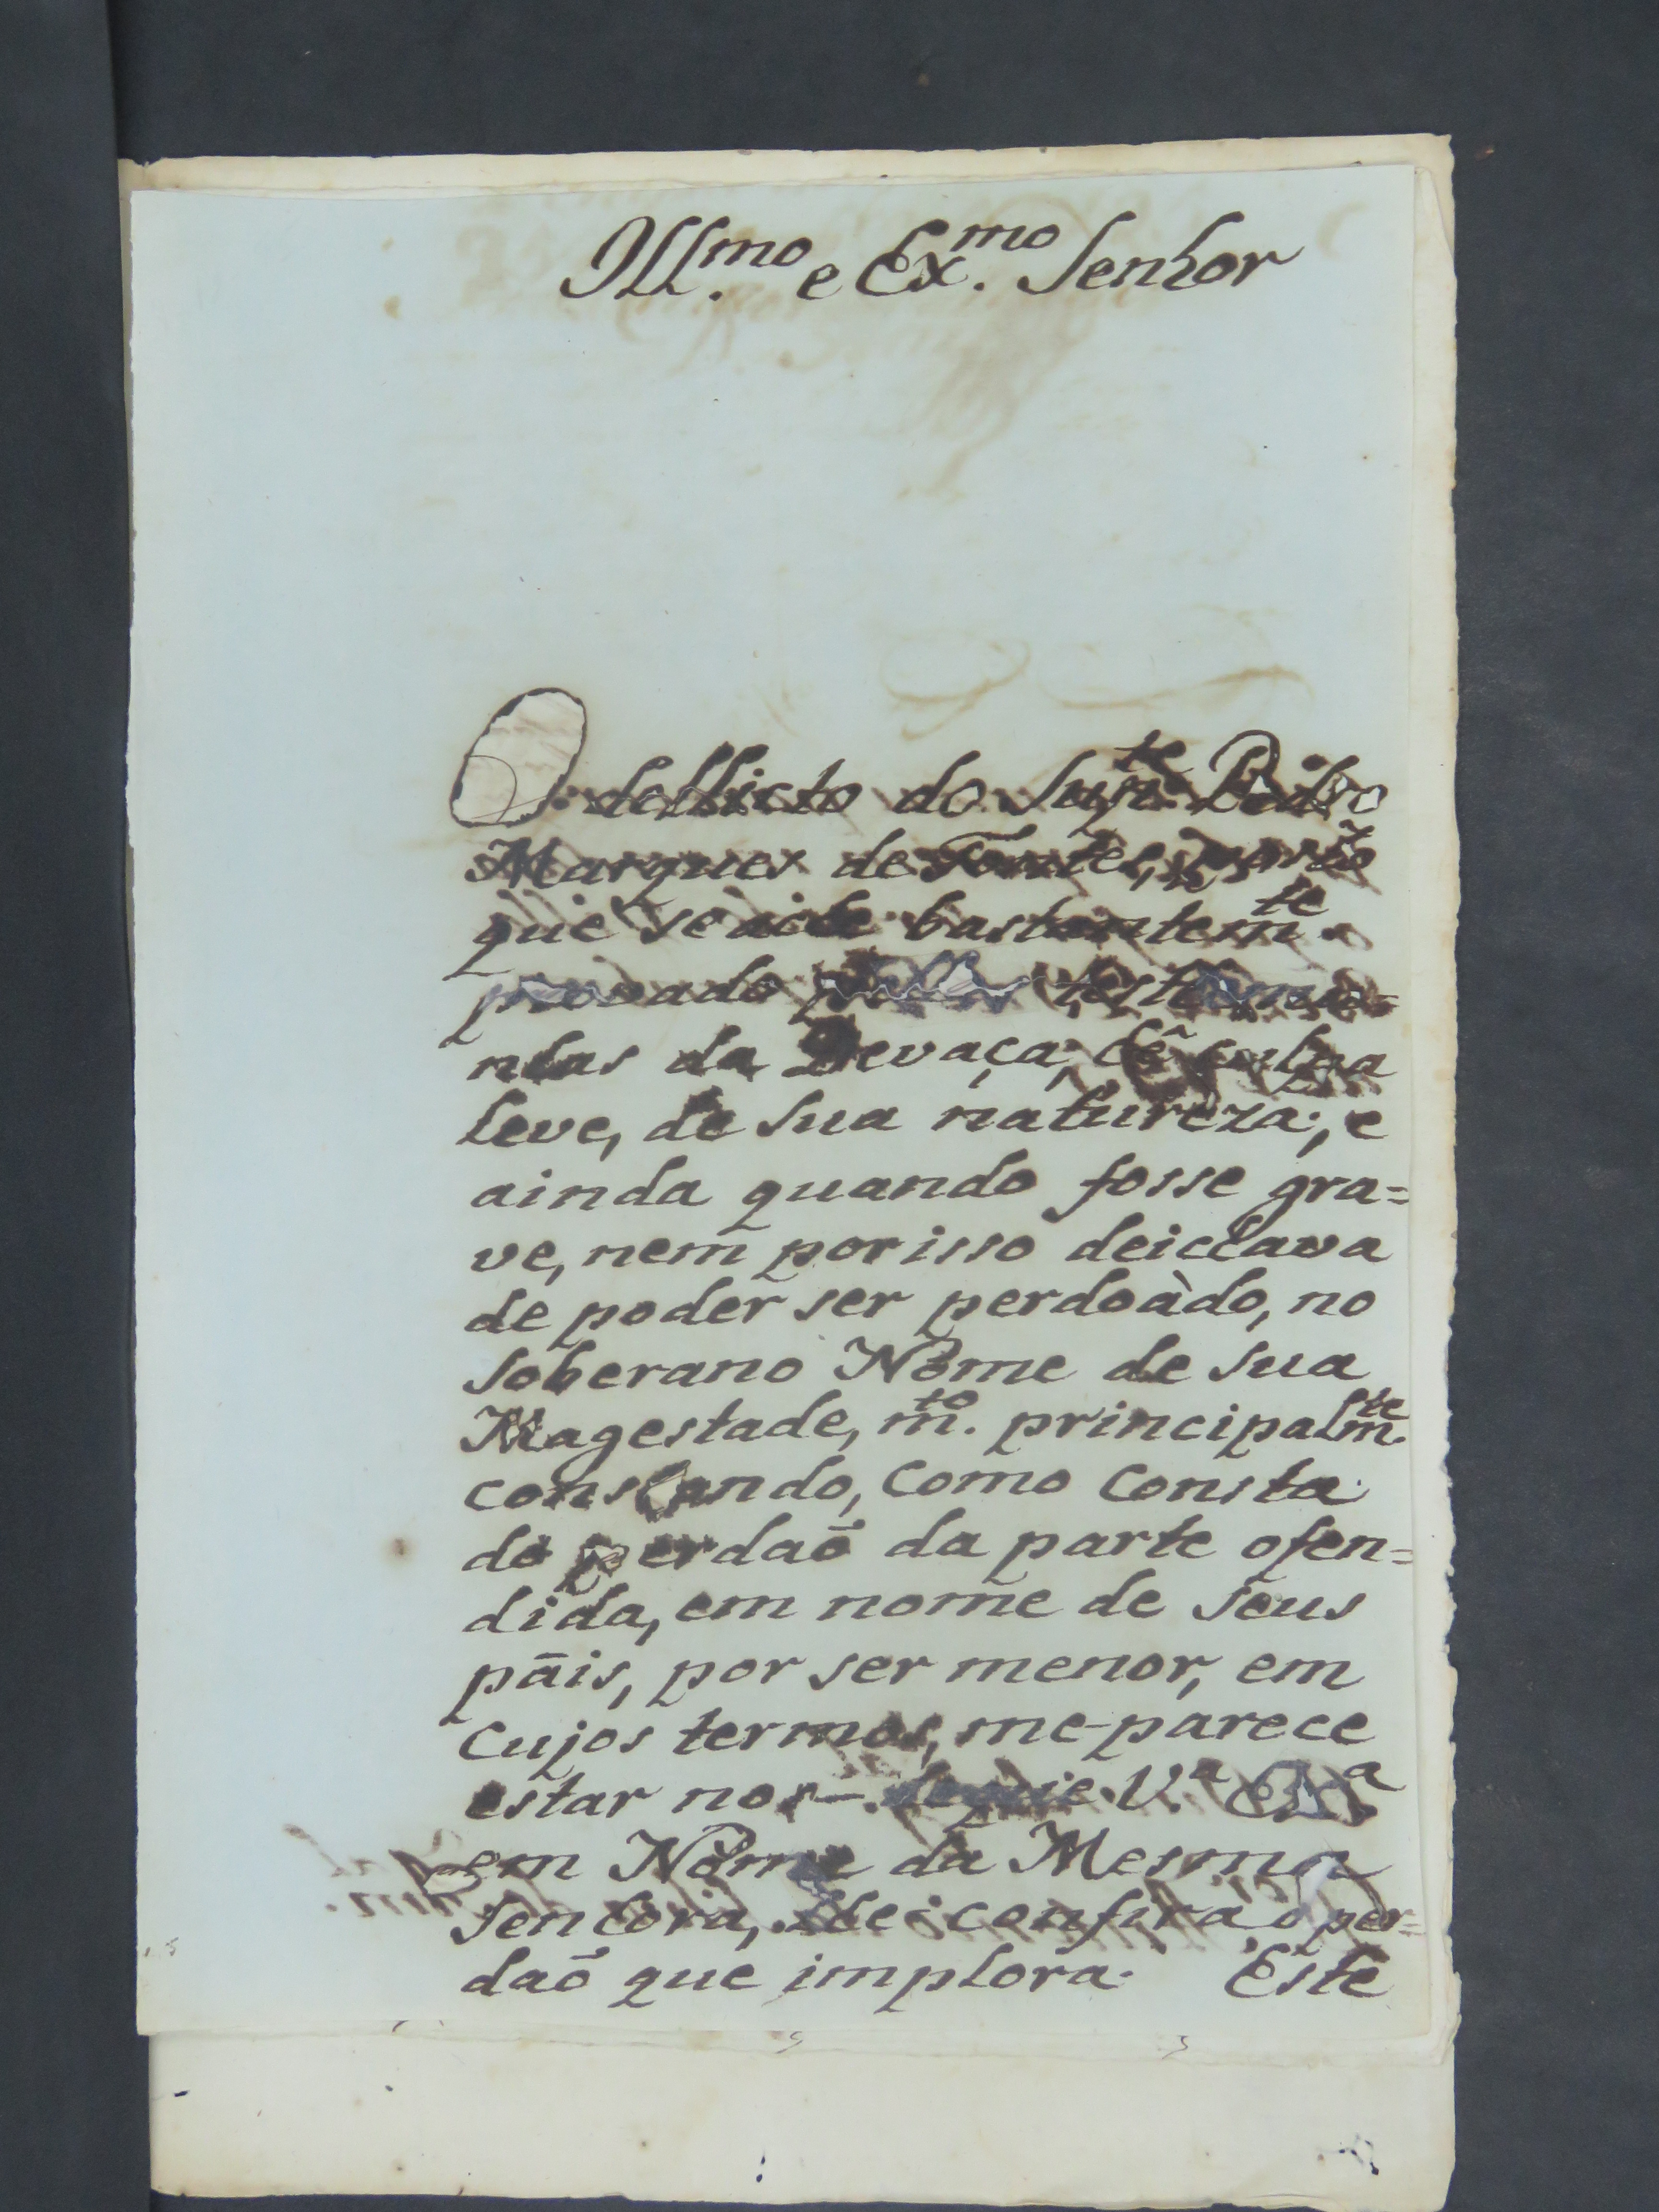 Ill.mo e Ex.mo Senhor
O dellicto do Sup.te Pedro
Marques de Fontes, posto
que se acìe bastantem.te
provado pellas testemu=
nìas da Devaça, hê culpa
leve, de sua natureza; e
ainda quando fosse gra=
ve, nem por isso deicìava
de poder ser perdoàdo, no
soberano Nome de sua
Magestade, m.to principalm.te
constando, como consta
do perdaõ da parte ofen=
dida, em nome de seus
pāis, por ser menor, em
cujos termos, me-parece
estar nos - de que V.a Ex.a
em Nome da Mesma
Senìora, lìe confira o per=
daõ que implora. Este